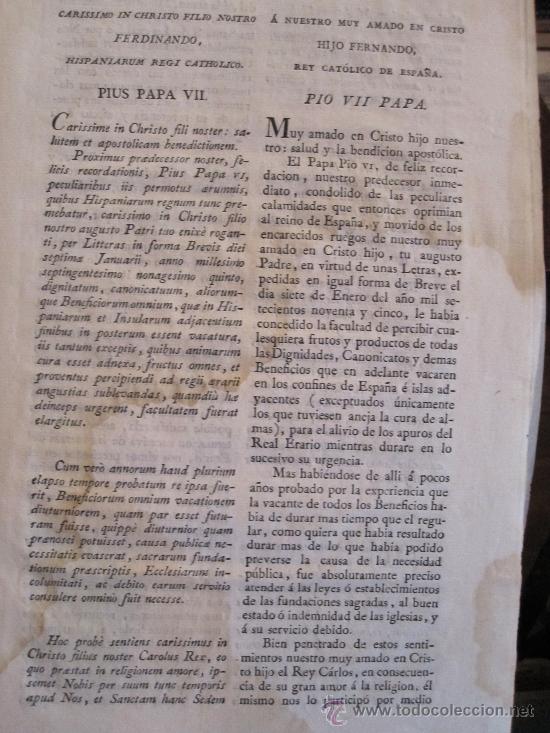 CARISSIMO IN CHRISTO FILIO NOSTRO
FERDINANDO,
HISPANIARUM REGI CATHOLICO.
PIUS PAPA VII.
Carissime in Christo fili noster: sa-
lutem et apostolicam benedictionem.
Proximus prædecessor noster, fe-
licis recordationis, Pius Papa VI,
peculiaribus iis permotus ærumnis,
quibus Hispaniarum regnum tunc pre-
mebatur, carissimo in Christo filio
nostro augusto Patri tuo enixè rogan-
ti, per Litteras in forma Brevis diei
septimæ Januarii, anno millesimo
septingentesimo nonagesimo quinto,
dignitatum, canonicatuum, aliorum-
que Beneficiorum omnium, quæ in His-
paniarum et Insularum adjacentium
finibus in posterum essent vacatura,
iis tantum exceptis, quibus animarum
cura esset adnexa, fructus omnes, et
proventus percipiendi ad regii ærarii
angustias sublevandas, quamdiù hæ
deinceps urgerent, facultatem fuerat
elargitus.
Cum verò annorum haud plurium
elapso tempore probatum re ipsa fue-
rit, Beneficiorum omnium vacationem
diuturniorem, quam par esset futu-
ram fuisse, quippè diuturnior quam
prænosci potuisset, causa publicæ ne-
cessitatis evaserat, sacrarum funda-
tionum præscriptis, Ecclesiarum in-
columitati, ac debito earum servitio
consulere omninò fuit necesse.
Hoc probè sentiens carissimus in
Christo filius noster Carolus Rex, eo
quo præstat in religionem amore, ip-
semet Nobis per suum tunc temporis
apud Nos, et Sanctam hanc Sedem
Á NUESTRO MUY AMADO EN CRISTO
HIJO FERNANDO,
REY CATÓLICO DE ESPAÑA.
PIO VII PAPA.
Muy amado en Cristo hijo nues-
tro: salud y la bendicion apostólica.
El Papa Pio VI, de feliz recor-
dacion, nuestro predecesor inme-
diato, condolido de las peculiares
calamidades que entonces oprimian
al reino de España, y movido de los
encarecidos ruegos de nuestro muy
amado en Cristo hijo, tu augusto
Padre, en virtud de unas Letras, ex-
pedidas en igual forma de Breve el
dia siete de Enero del año mil se-
tecientos noventa y cinco, le habia
concedido la facultad de percibir cua-
lesquiera frutos y productos de todas
las Dignidades, Canonicatos y demas
Beneficios que en adelante vacaren
en los confines de España é islas ad-
yacentes (exceptuados únicamente
los que tuviesen aneja la cura de al-
mas), para el alivio de los apuros del
Real Erario mientras durare en lo
sucesivo su urgencia.
Mas habiéndose de alli á pocos
años probado por la experiencia que
la vacante de todos los Beneficios ha-
bia de durar mas tiempo que el regu-
lar, como quiera que habia resultado
durar mas de lo que habia podido
preverse la causa de la necesidad
pública, fue absolutamente preciso
atender á las leyes ó establecimientos
de las fundaciones sagradas, al buen
estado ó indemnidad de las iglesias, y
á su servicio debido.
Bien penetrado de estos senti-
mientos nuestro muy amado en Cris-
to hijo el Rey Cárlos, en consecuen-
cia de su gran amor á la religion, él
mismo nos lo participó por medio
todocoleccion.net